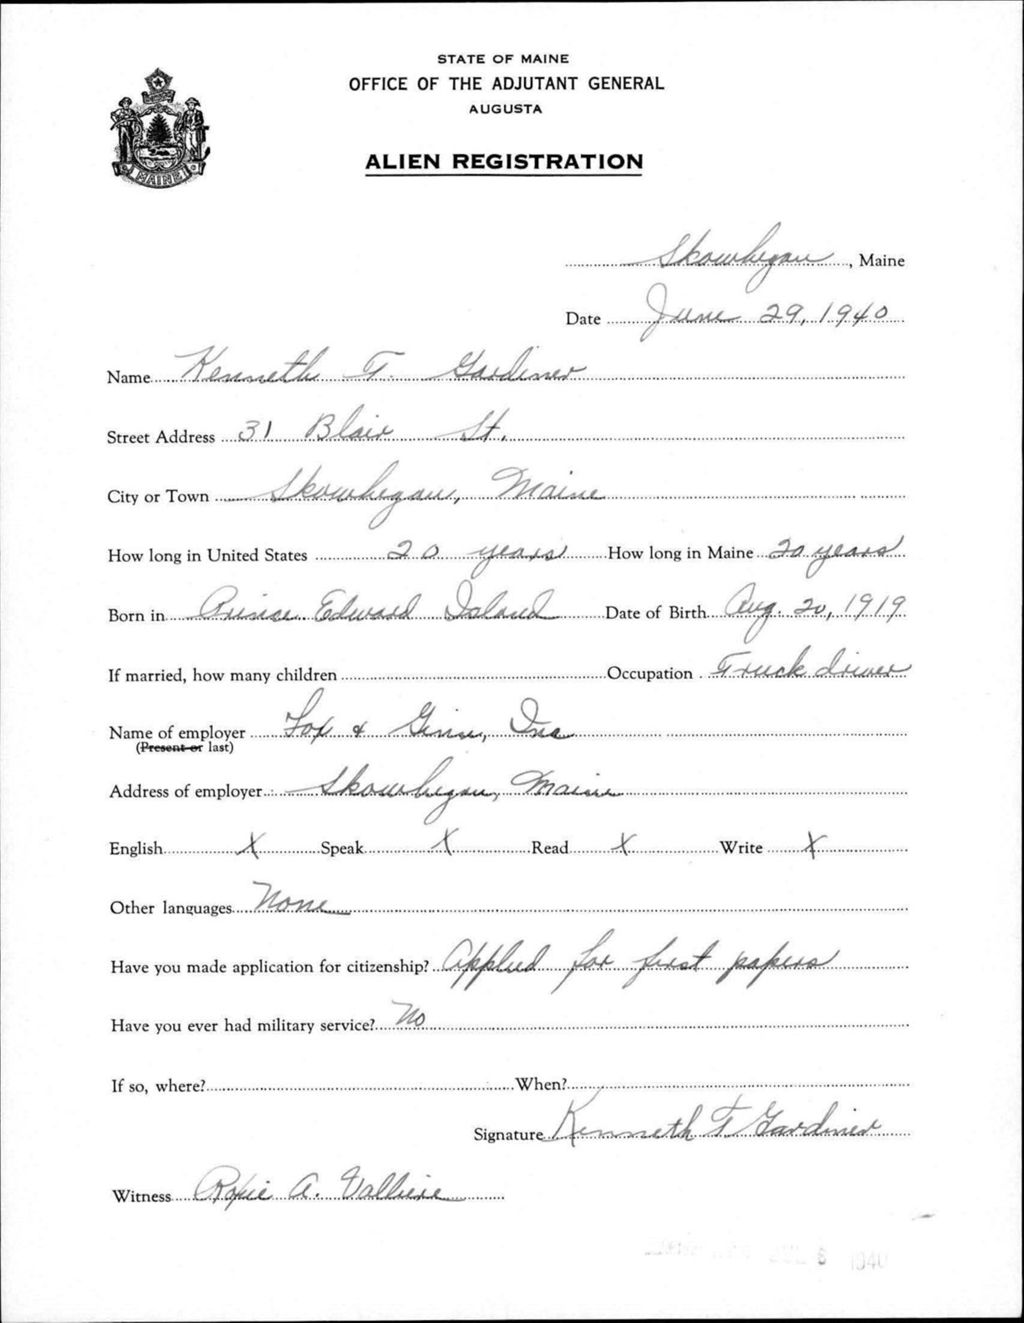 STATE OF MAINE
OFFICE OF THE ADJUTANT GENERAL
AUGUSTA
ALIEN REGISTRATION
MAINE
Skowhegan, Maine
Date June 29, 1940
Name Kenneth F. Gardiner
Street Address 31 Blair St.
City or Town Skowhegan, Maine
How long in United States 20 years How long in Maine 20 years
Born in Prince Edward Island Date of Birth Aug. 20, 1919
If married, how many children Occupation Truck driver
Name of employer Fox & Ginn, Inc
(Present or last)
Address of employer Skowhegan, Maine
English X Speak X Read X Write X
Other languages None
Have you made application for citizenship? Applied for first papers
Have you ever had military service? No
If so, where? When?
Signature Kenneth F Gardiner
Witness A. Valliere
1940